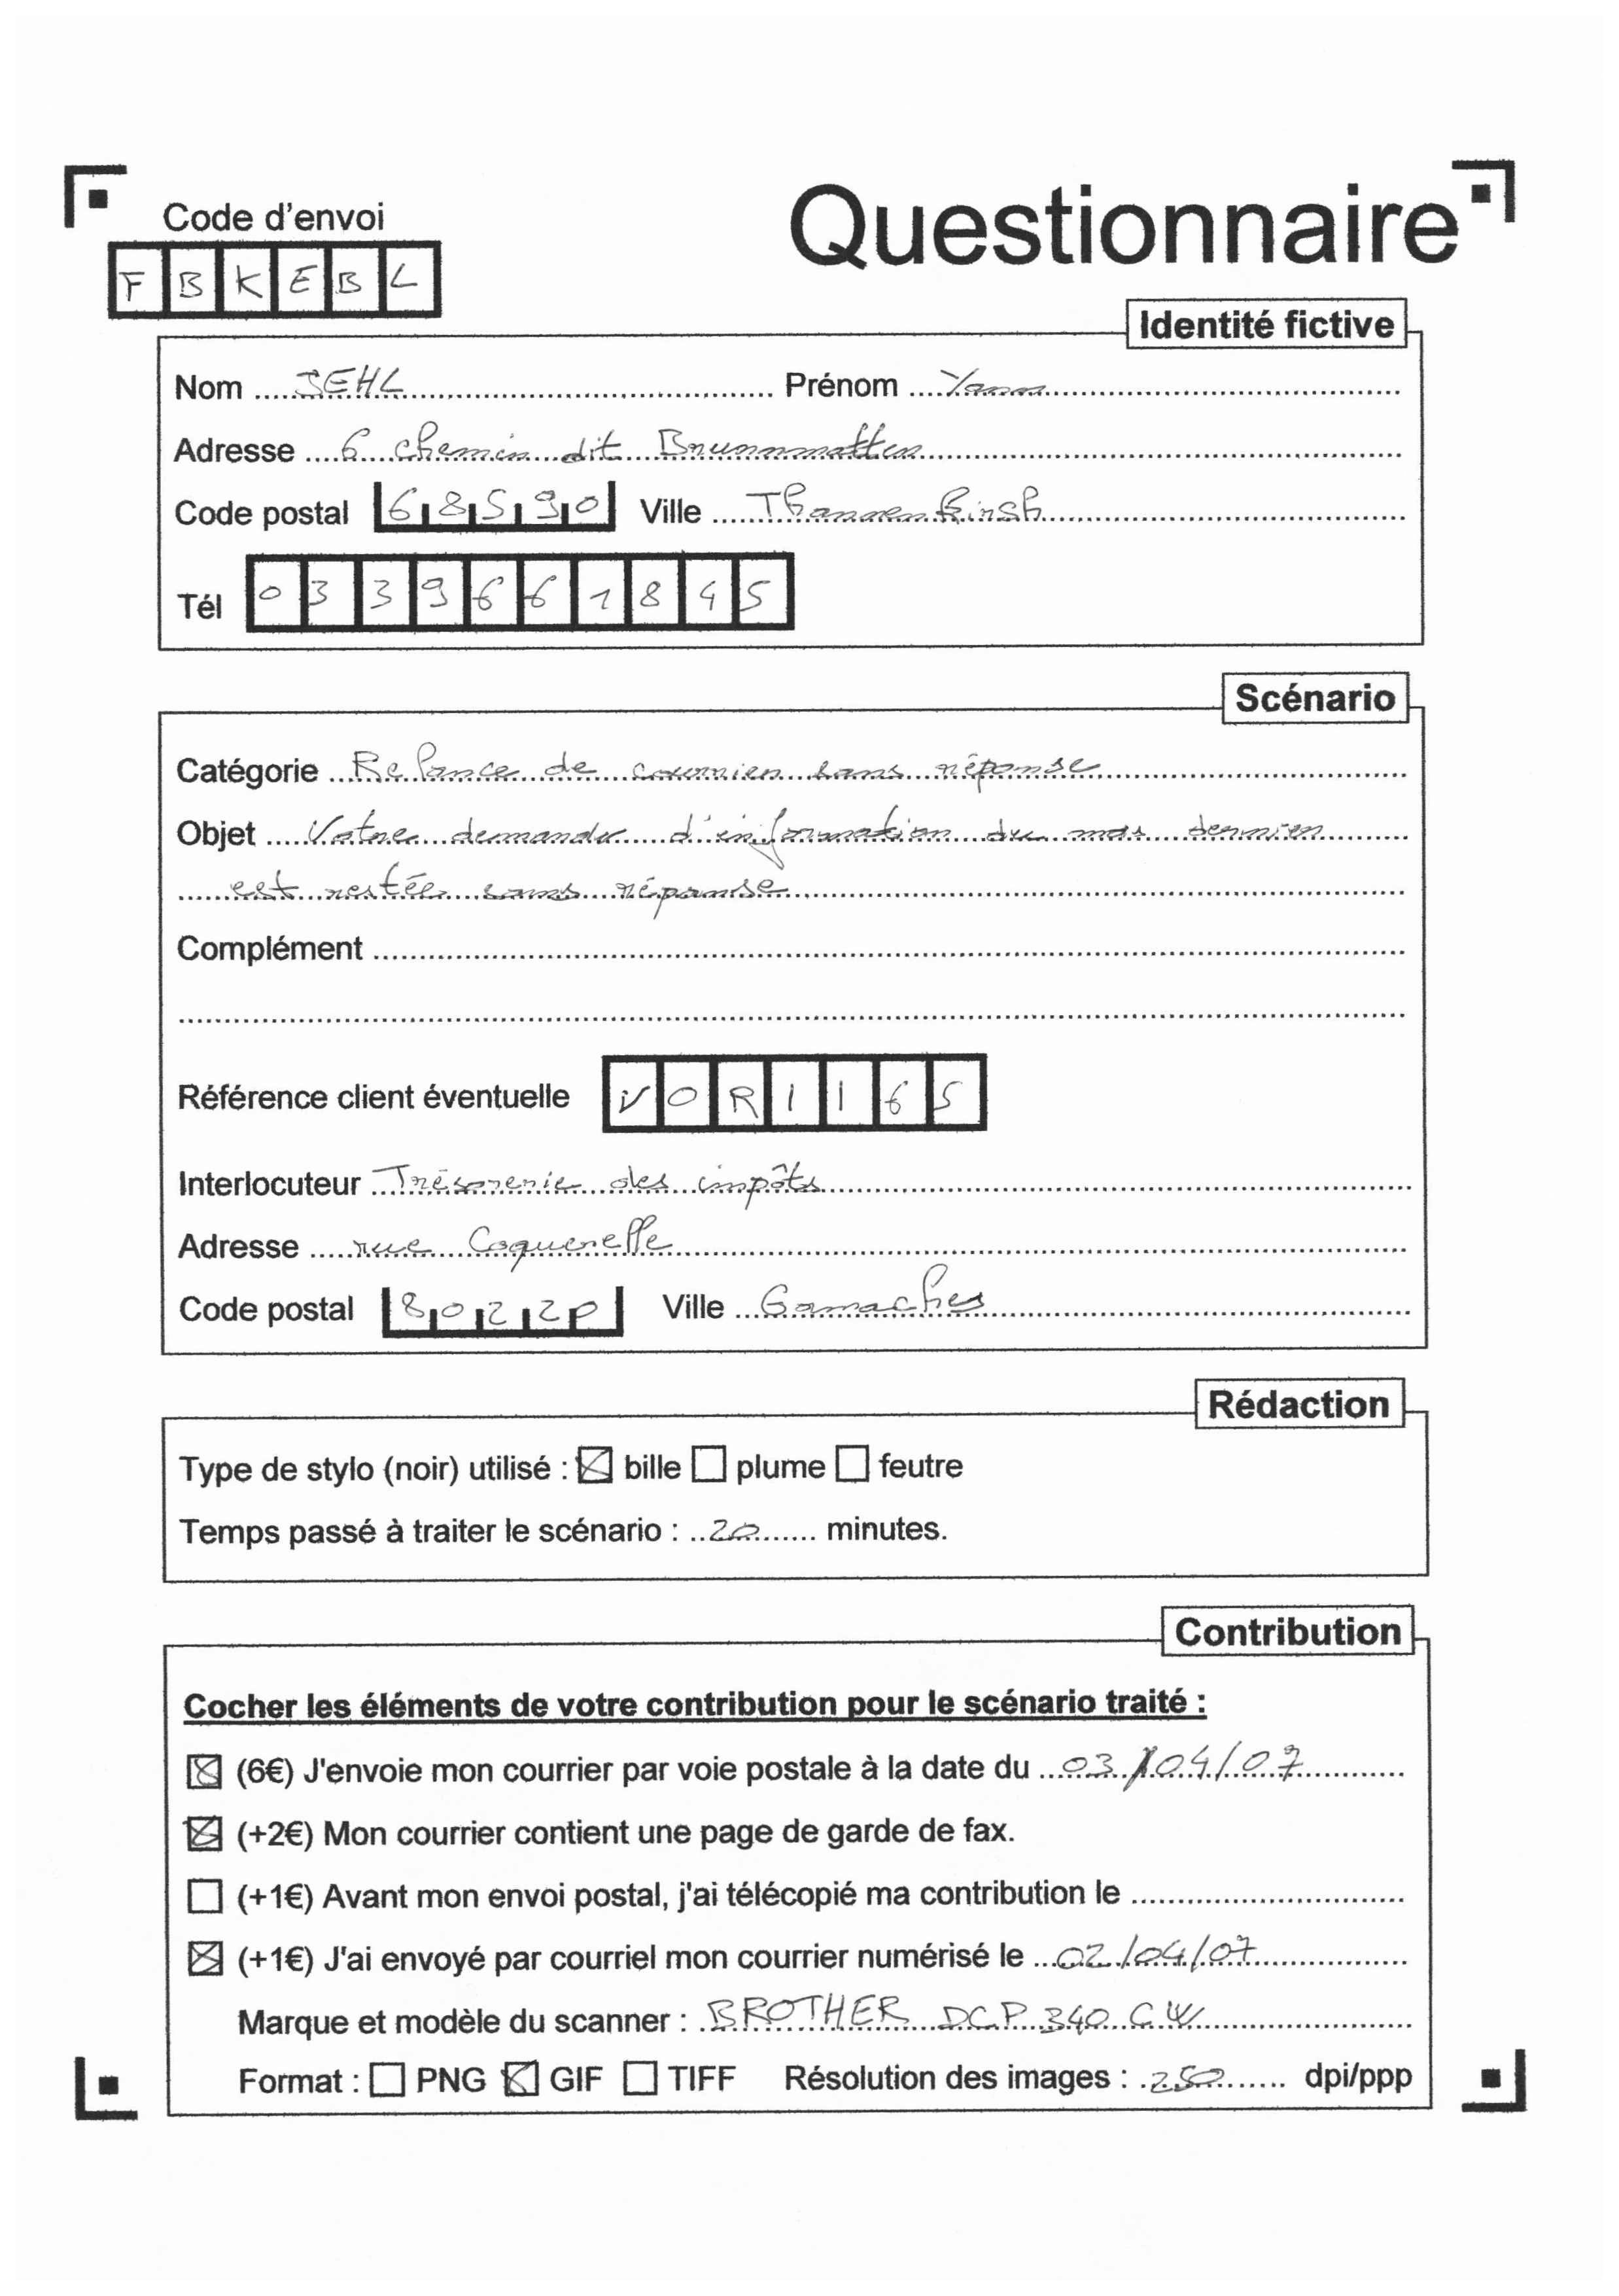 Questionnaire
Code d'envoi
F B K E B L
Identité fictive
Nom JEHL Prénom Yann
Adresse 6 chemin dit Brunnmatten
Code postal 68590 Ville Thannenkirsh
Tél 0339661845
Scénario
Catégorie Relance de courrier sans réponse
Objet Votre demande d'information du mois dernier
est restée sans réponse
Complément
Référence client éventuelle VORII65
Interlocuteur Trésorerie des impôts
Adresse rue Coquerelle
Code postal 80220 Ville Gamaches
Rédaction
Type de stylo (noir) utilisé : ☒ bille ☐ plume ☐ feutre
Temps passé à traiter le scénario : 20 minutes.
Contribution
Cocher les éléments de votre contribution pour le scénario traité :
☒ (6€) J'envoie mon courrier par voie postale à la date du 03/04/07
☒ (+2€) Mon courrier contient une page de garde de fax.
☐ (+1€) Avant mon envoi postal, j'ai télécopié ma contribution le
☒ (+1€) J'ai envoyé par courriel mon courrier numérisé le 02/04/07
Marque et modèle du scanner : BROTHER DCP 340 CW
Format : ☐ PNG ☒ GIF ☐ TIFF Résolution des images : 250 dpi/ppp